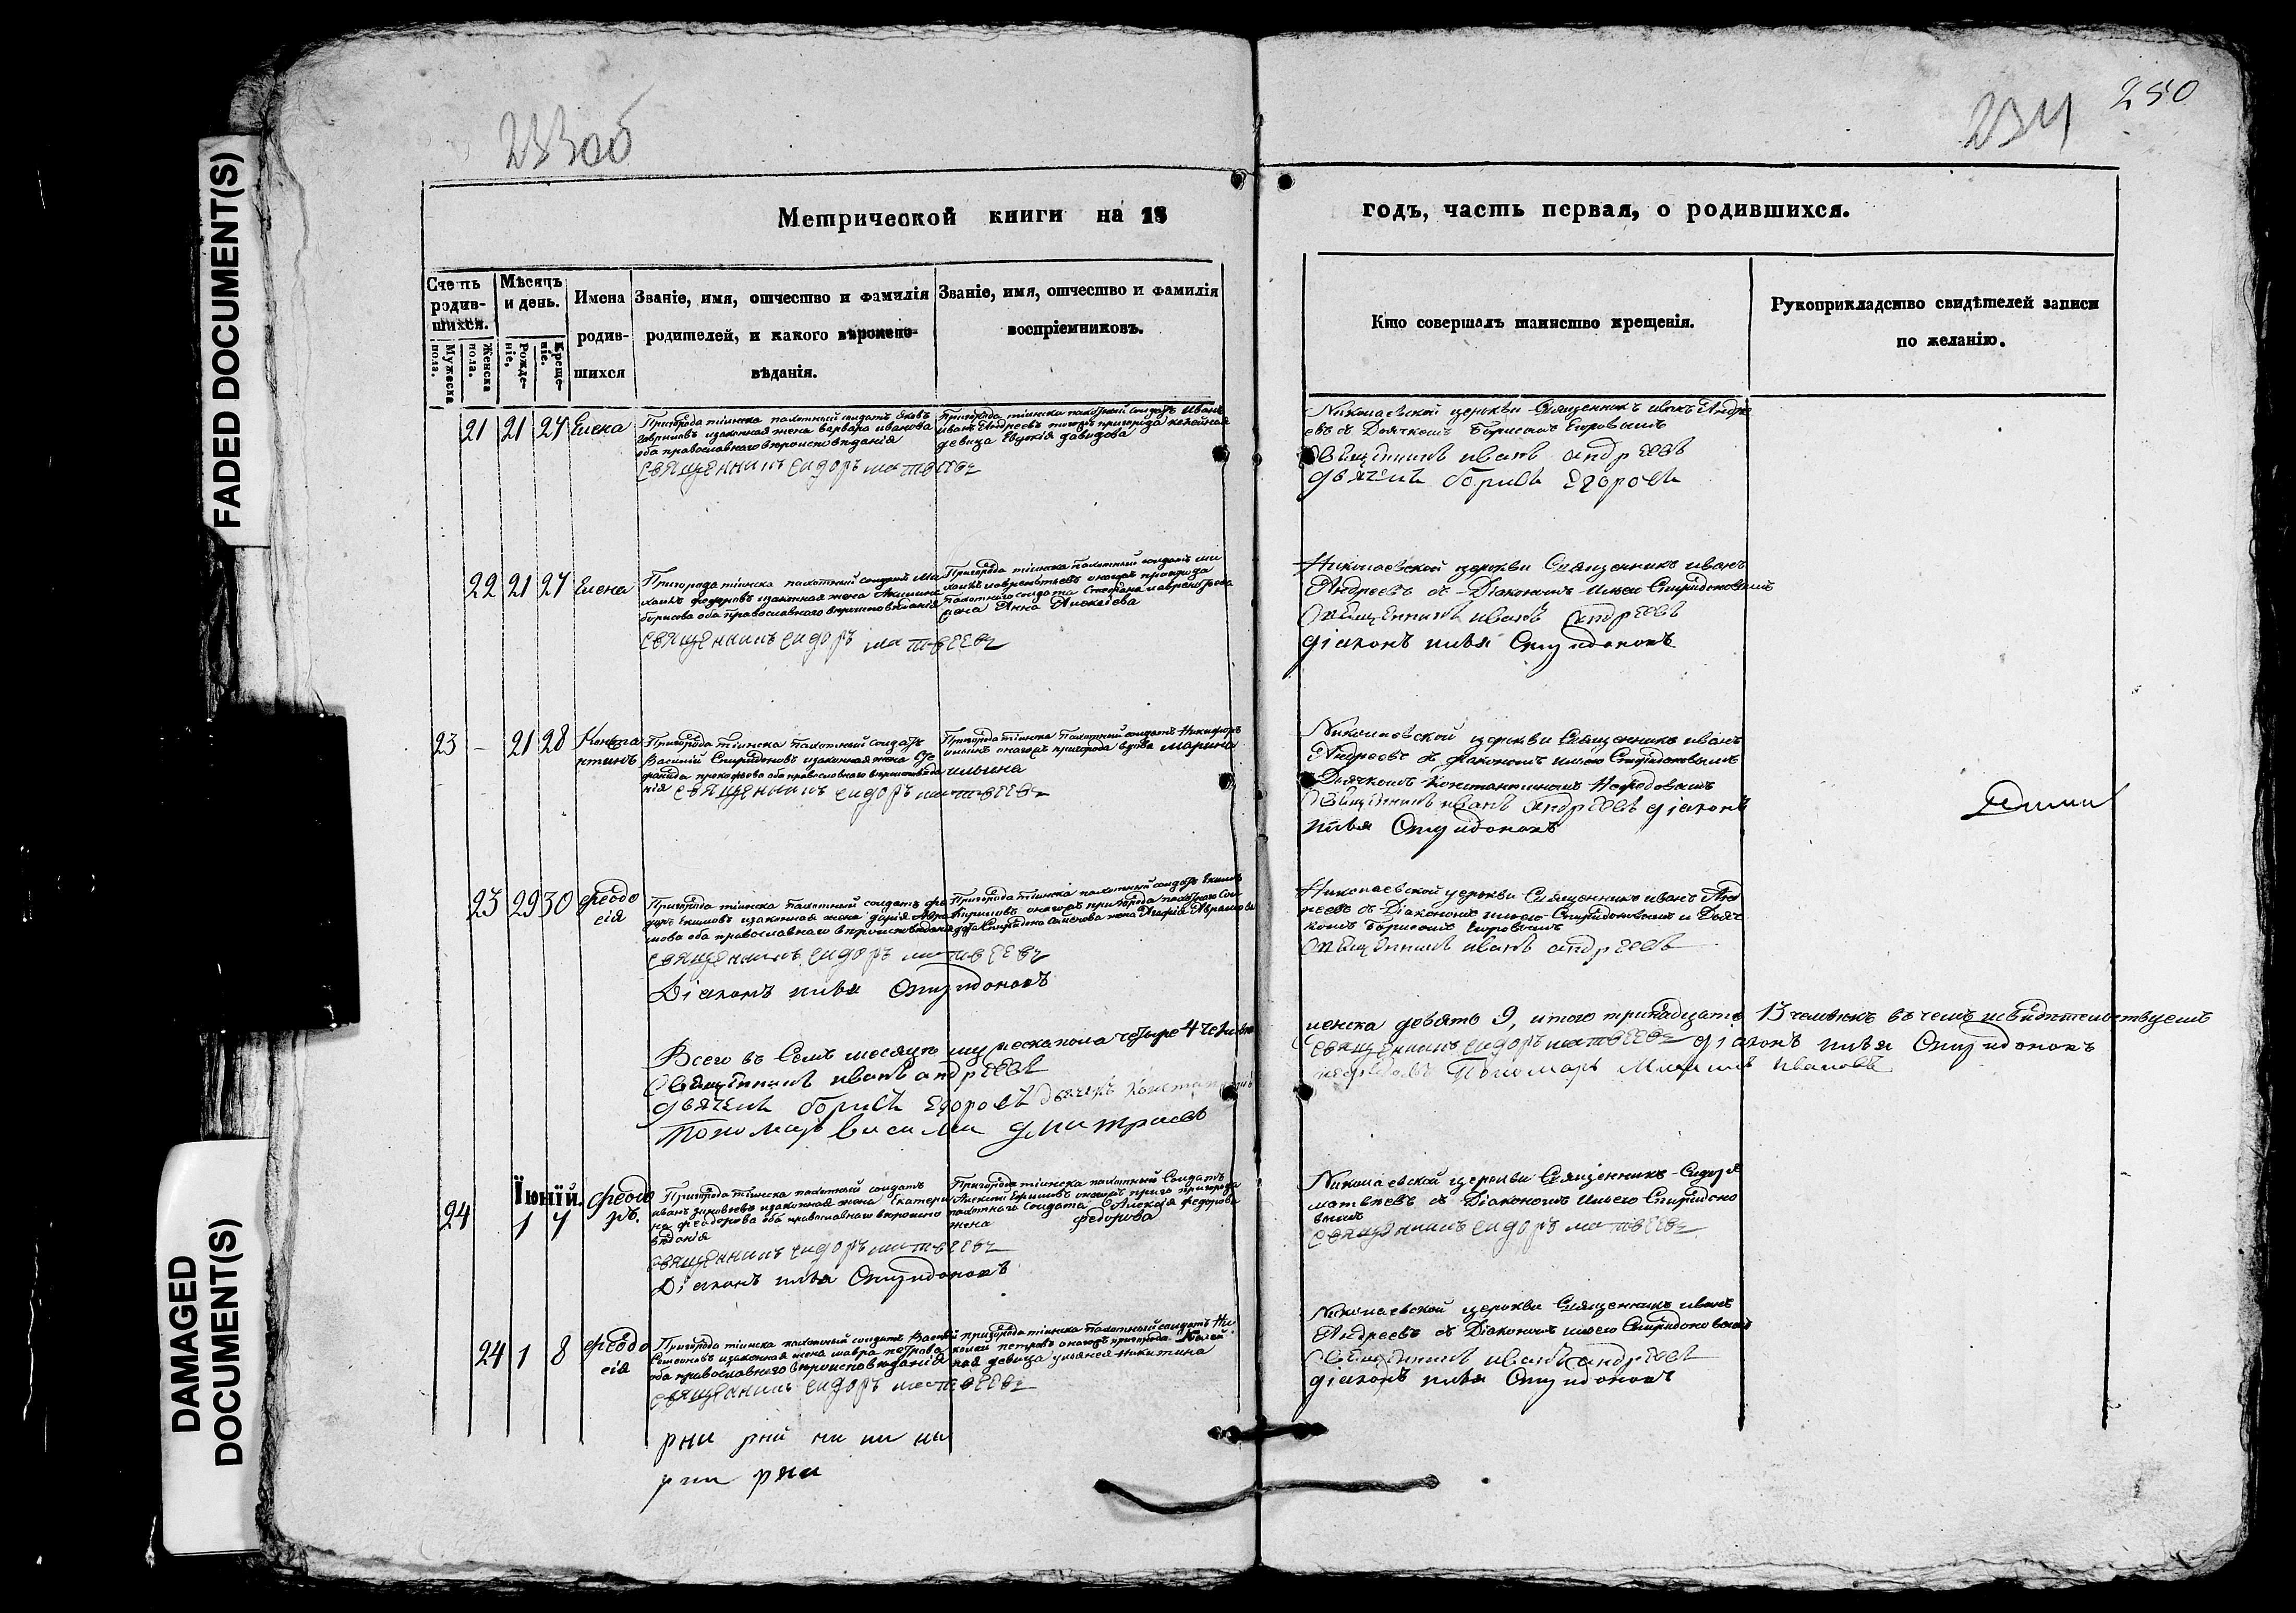 FADED DOCUMENT(S)
DAMAGED
DOCUMENT(S)
233об
234
250
Метрической книги на 18
годъ, часть первая, о родившихся.
Счетъ родив-
шихся.
Мужеска пола.
Женска пола.
Мѣсяцъ
и день.
Рожде-
ніе.
Креще-
ніе.
Имена
родив-
шихся
Званіе, имя, отчество и фамилія
родителей, и какого вѣроиспо-
вѣданія.
Званіе, имя, отчество и фамилія
воспріемниковъ.
Кто совершалъ таинство крещенія.
Рукоприкладство свидѣтелей записи
по желанію.
21 21 27 Елена
Пригорода тіинска пахотный солдатъ Яковъ
Гавриловъ изаконная жена варвара иванова
оба православнаго вѣроисповѣданія
священникъ сидоръ матвеевъ
Пригорода тіинска пахотный солдатъ Иванъ
девица Евдокія давидова
Николаевской церкви Священникъ иванъ Андре
евъ съ Дьячкомъ Борисомъ Егоровымъ
Священникъ иванъ андреевъ
дьячекъ борисъ Егоровъ
22 21 27 Елена
Пригорода тіинска пахотный солдатъ Ми
хаилъ федоровъ изаконная жена Акилина
борисова оба православнаго вѣроисповѣданія
священникъ сидоръ матвеевъ
Пригорода тіинска пахотный солдатъ ми
хаилъ лаврентьевъ онагожъ пригорода
пахотнаго солдата Стефана лаврентьева
жена Анна Алексеева
Николаевской церкви Священникъ иванъ
Андреевъ съ Діакономъ Ильею Спиридоновымъ
Священникъ иванъ андреевъ
діаконъ илья Спиридоновъ
23 - 21 28 Конста
нтинъ
Пригорода тіинска пахотный солдатъ
Василій Спиридоновъ изаконная жена Сте
фанида прокофьева оба православнаго вѣроисповѣда
нія священникъ сидоръ матвеевъ
Пригорода тіинска Пахотный солдатъ Никифоръ
ильинъ онагожъ пригорода вдова марина
ильина
Николаевской церкви Священникъ иванъ
Андреевъ съ діакономъ ильею Спиридоновымъ
Дьячкомъ Константиномъ
Священникъ иванъ андреевъ діаконъ
илья Спиридоновъ
23 29 30 феодо
сія
Пригорода тіинска пахотный солдатъ фе
доръ Екимовъ изаконная жена дарія Абра
мова оба православнаго вѣроисповѣданія
священникъ сидоръ матвеевъ
Діаконъ илья Спиридоновъ
Пригорода тіинска пахотный солдатъ Екимъ
Кириловъ онагожъ пригорода пахотнаго сол
дата Спиридона Семенова жена Агафія Абрамова
Николаевской церкви Священникъ иванъ Анд
реевъ съ Діакономъ ильею Спиридоновымъ и Дьяч
комъ Борисомъ Егоровымъ
Священникъ иванъ андреевъ
Всего въ Семъ месяце мужеска пола четыре 4 женска девять 9, итого тринадцать 13 человекъ въ чемъ исвидетельствуемъ
Священникъ иванъ андреевъ
священникъ сидоръ матвеевъ діаконъ илья Спиридоновъ
дьячекъ борисъ Егоровъ дьячекъ Константинъ
Пономарь Михаилъ Ивановъ
Пономарь василій дмитріевъ
Їюнїй.
24 1 7 феодо
ръ.
Пригорода тіинска пахотный солдатъ
иванъ зиновьевъ изаконная жена Екатери
на феодорова оба православнаго вероиспо
веданія
священникъ сидоръ матвеевъ
Діаконъ илья Спиридоновъ
Пригорода тіинска пахотный Солдатъ
Алексей Ефимовъ онагожъ приго пригорода
пахотнаго солдата Алексея федорова
жена федорова
Николаевской церкви Священникъ Сидоръ
матвеевъ съ Діакономъ Ильею Спиридоно
вымъ
священникъ сидоръ матвеевъ
24 1 8 феодо
сія
Пригорода тіинска пахотный солдатъ Василій
Семеновъ изаконная жена мавра петрова
оба православнаго вѣроисповѣданія
священникъ сидоръ матвеевъ
пригорода тіинска пахотный солдатъ Ни
колай петровъ онагожъ пригорода Келей
ная девица ульянея никитина
Николаевской церкви Священникъ иванъ
Андреевъ съ Діакономъ ильею Спиридоновымъ
Священникъ иванъ андреевъ
діаконъ илья Спиридоновъ